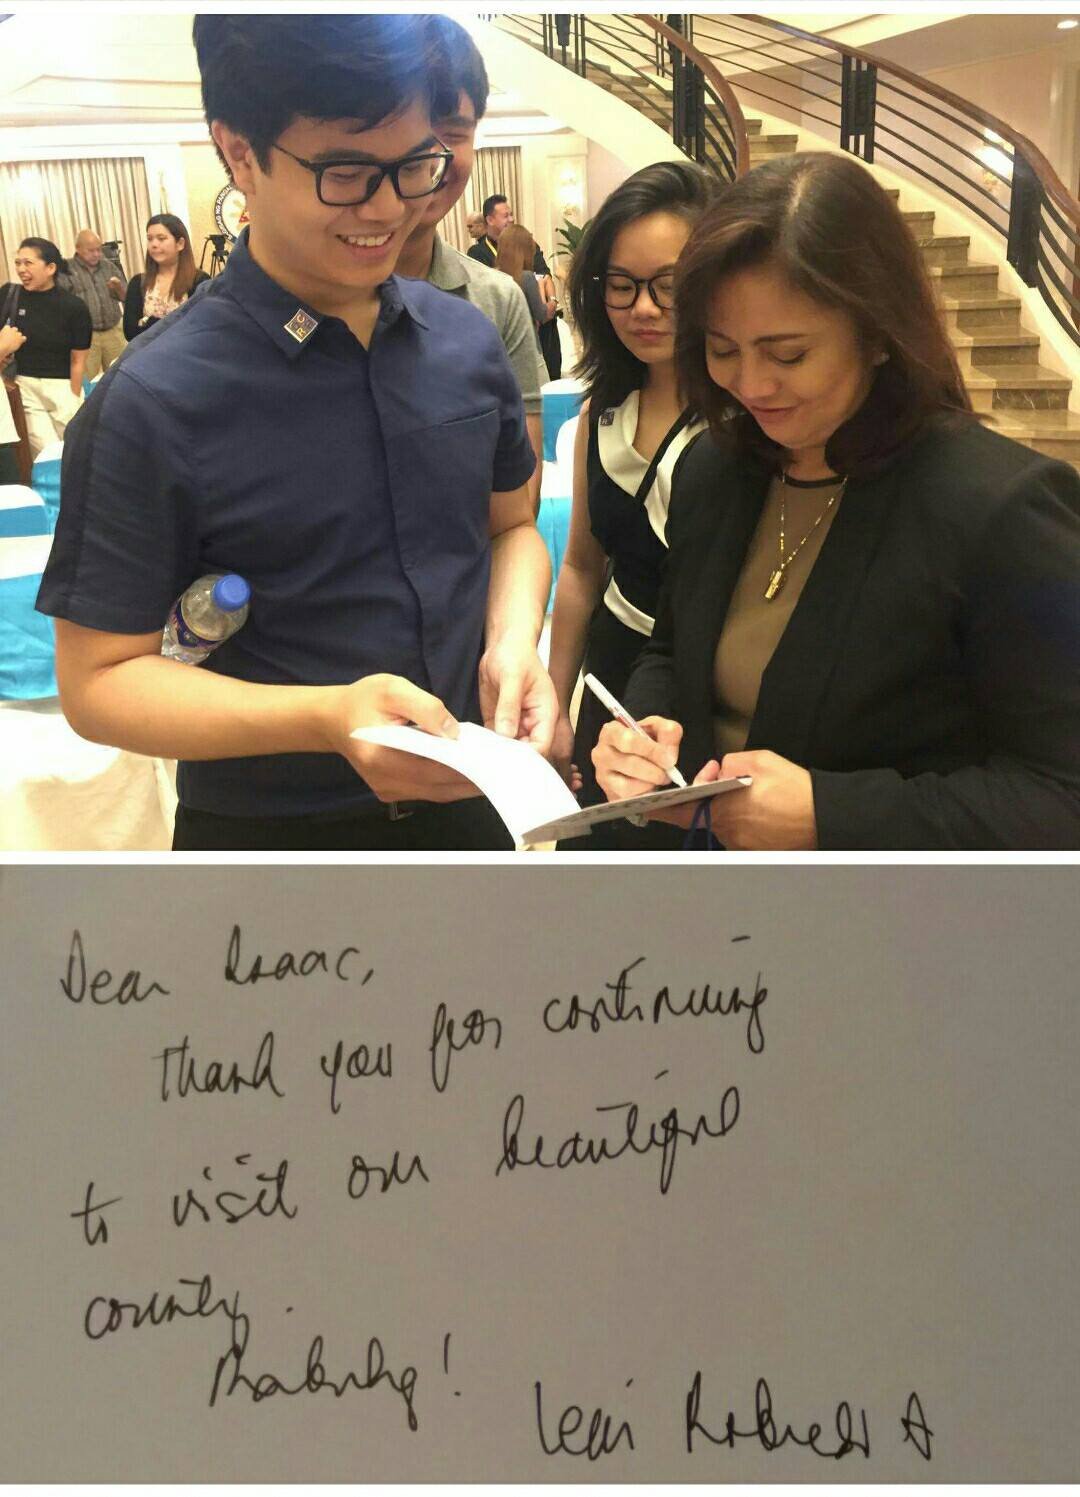 C
R
Dear Isaac,
Thank you for continuing
to visit our beautiful
country.
Mabuhay!
Leni Robredo